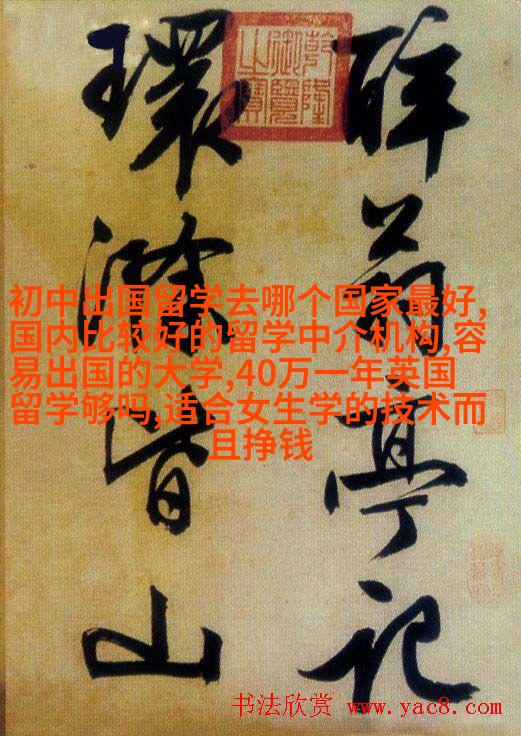 醉翁亭記
環滁皆山
乾隆
御覽
之寶
初中出国留学去哪个国家最好,
国内比较好的留学中介机构,容
易出国的大学,40万一年英国
留学够吗,适合女生学的技术而
且挣钱
书法欣赏 www.yac8.com